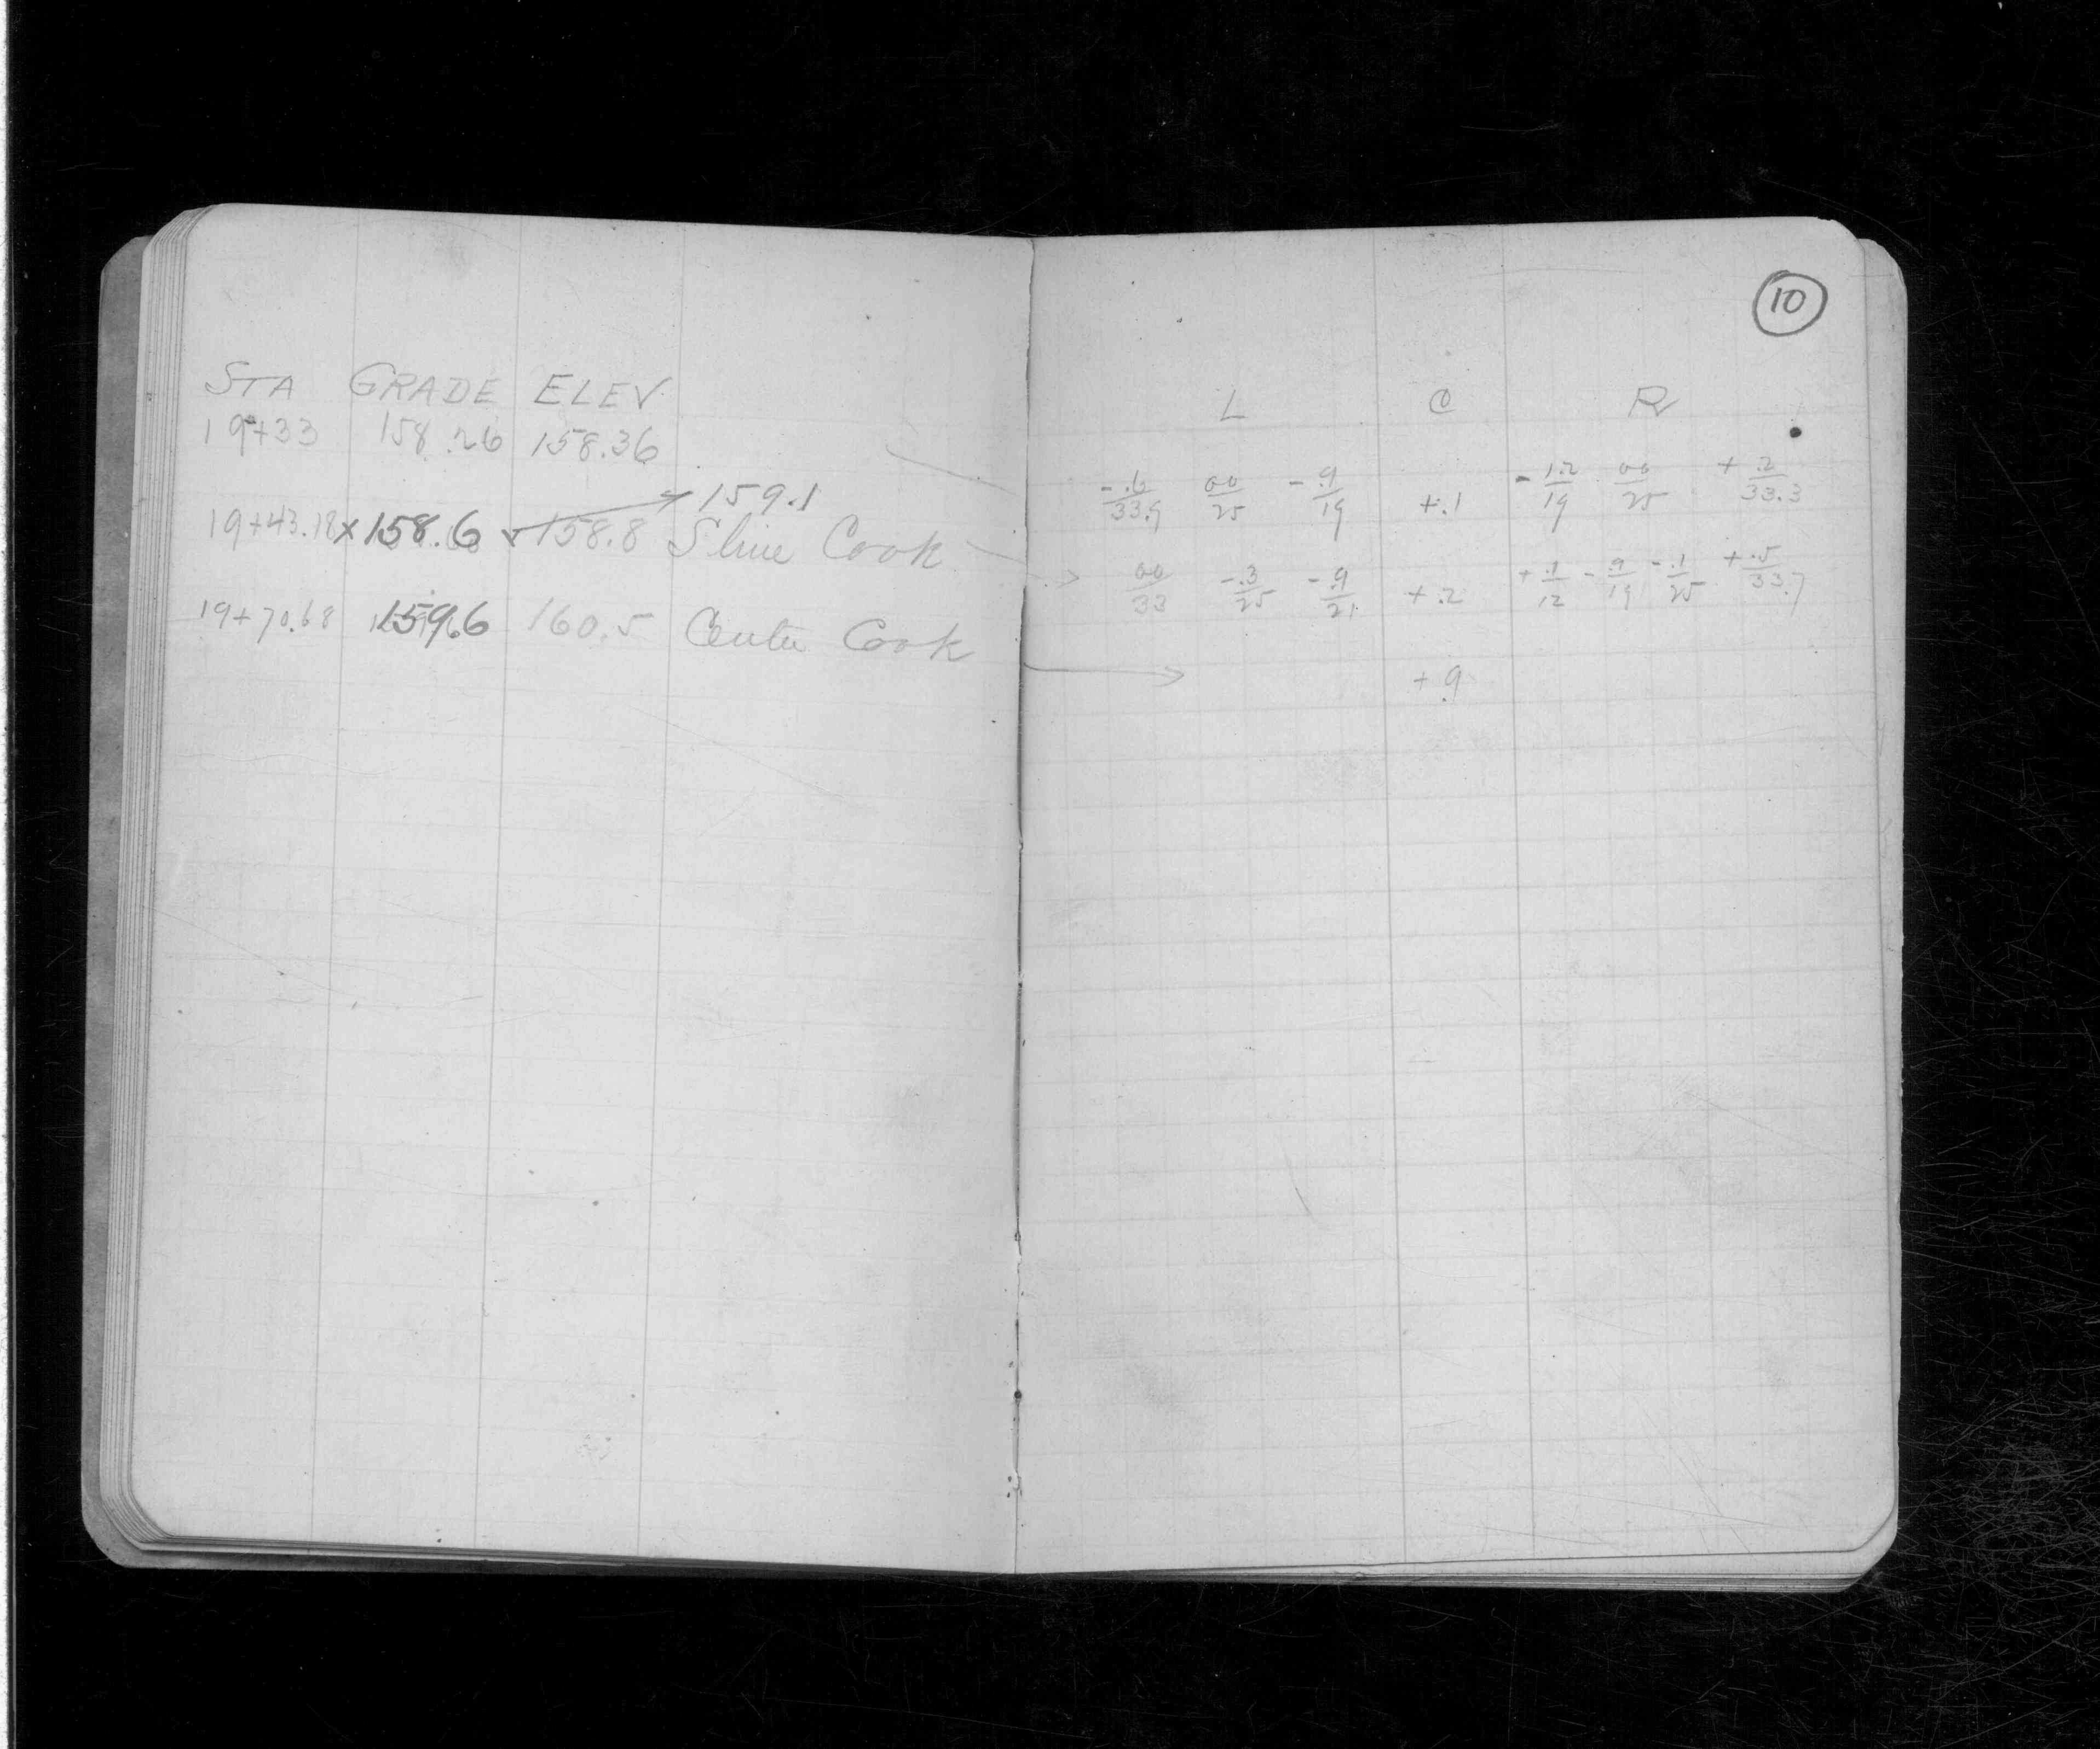 STA GRADE ELEV.
19+33 158.26 158.36
159.1
19+43.18 x 158.6 158.8 S line Cook
19+70.68 159.6 160.5 Center Cook
10
L C R
-.6/33.9 00/25 -.9/19 +.1 -1.2/19 00/25 +.2/33.3
00/33 -.3/25 -.9/21 +.2 +.1/12 -.9/19 -.1/25 +.5/33.7
+.9